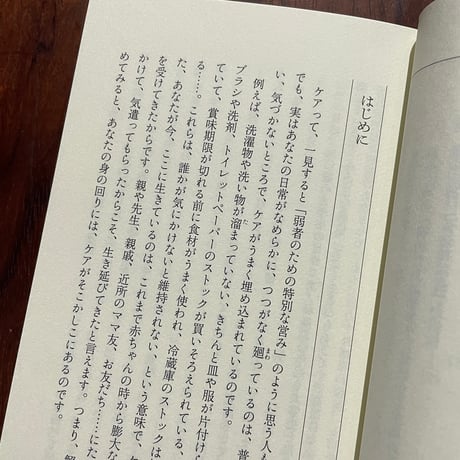 はじめに
ケアって、一見すると「弱者のための特別な営み」のように思う人も
でも、実はあなたの日常がなめらかに、つつがなく廻っているのは、普
い、気づかないところで、ケアがうまく埋め込まれているのです。
例えば、洗濯物や洗い物が溜まっていない、きちんと皿や服が片付け
ブラシや洗剤、トイレットペーパーのストックが買いそろえられている、
ていて、賞味期限が切れる前に食材がうまく使われ、冷蔵庫のストックは
る……。これらは、誰かが気にかけないと維持されない、という意味で、
た、あなたが今、ここに生きているのは、これまで赤ちゃんの時から膨大な
を受けてきたからです。親や先生、親戚、近所のママ友、お友だち……にた
かけて、気遣ってもらったからこそ、生き延びてきたと言えます。つまり、
めてみると、あなたの身の回りには、ケアがそこかしこにあるのです。